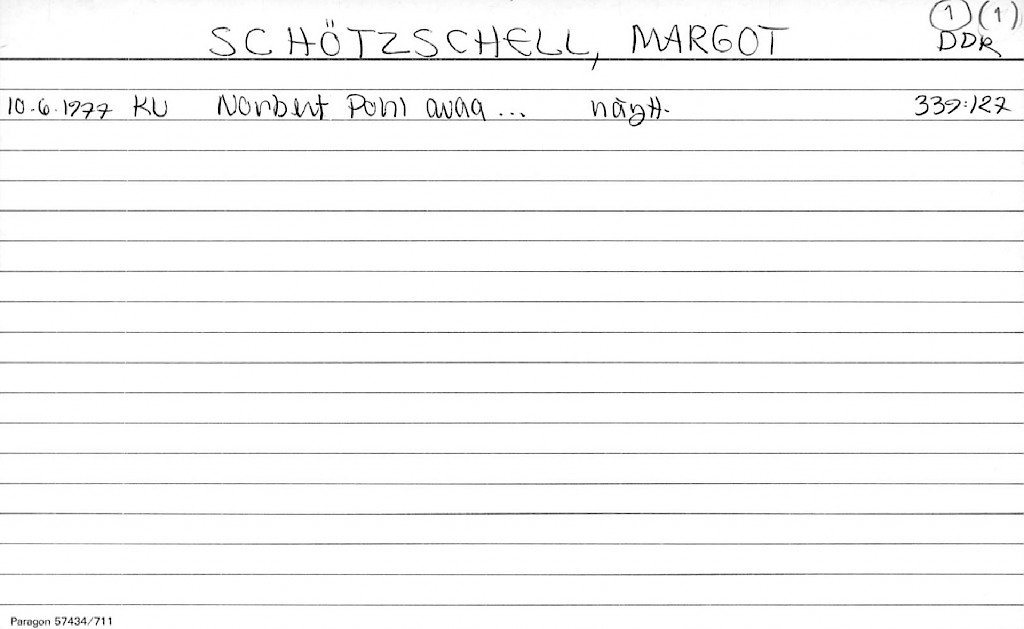 ① (1)
SCHÖTZSCHELL, MARGOT DDR
10.6.1977 KU Norbert Pohl avaa ... näytt. 339:127
Paragon 57434/711